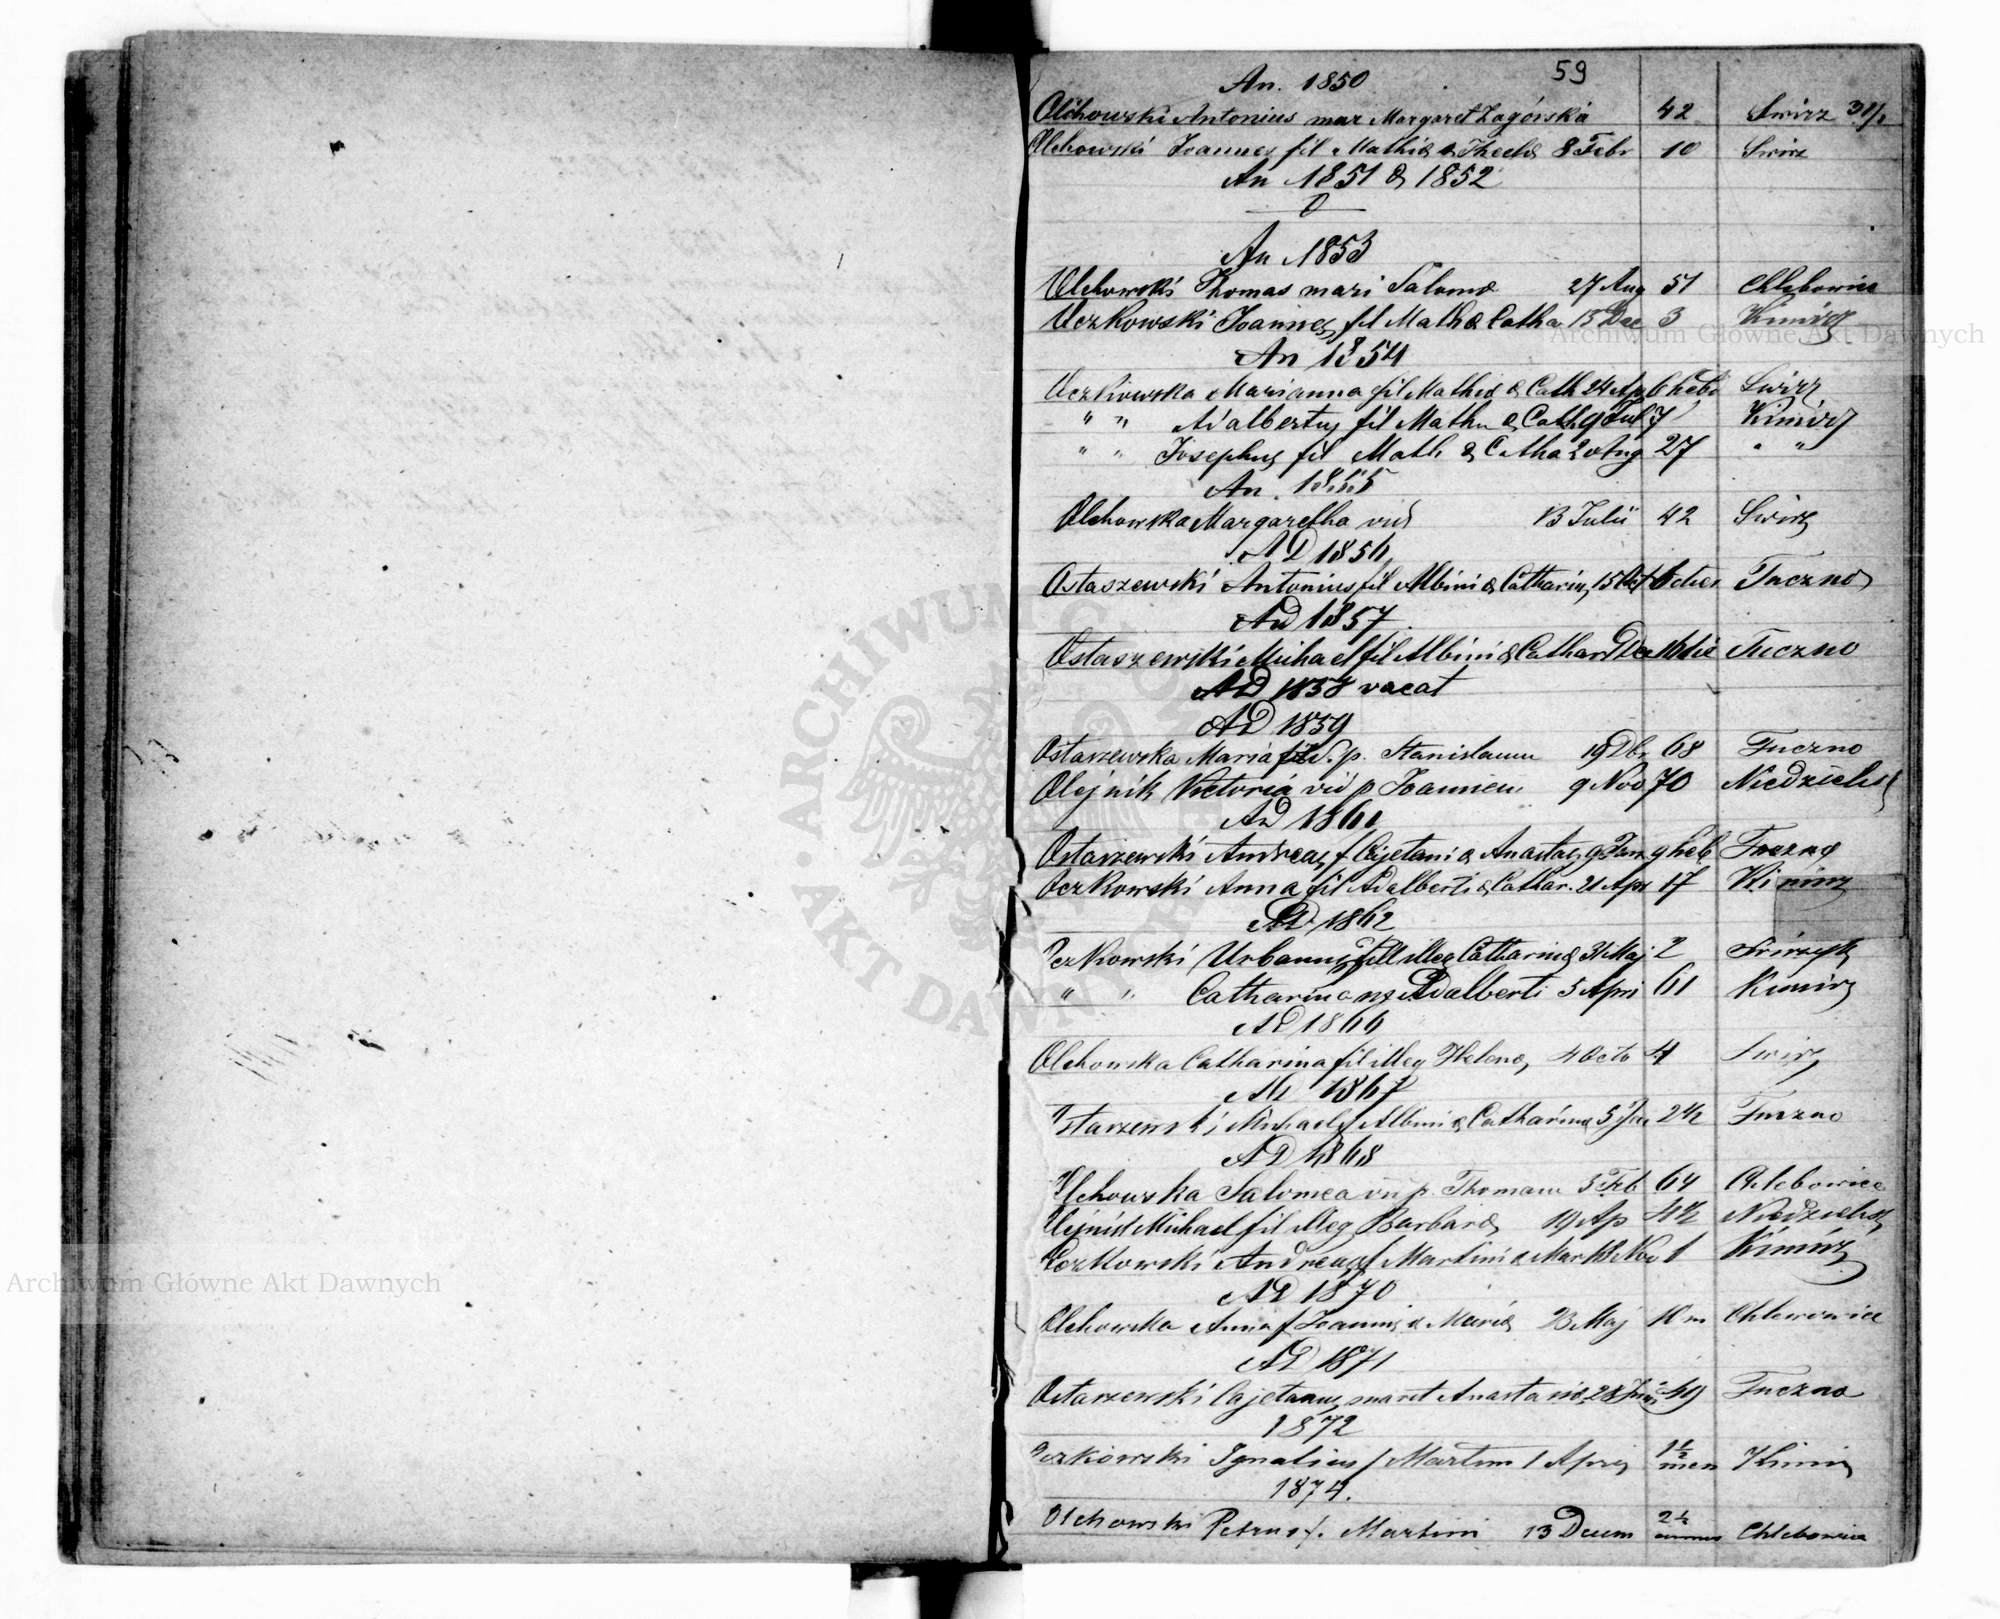 59
An. 1850
Olchowski Antonius mar Margaret Zagórska 42 Swirz
Olchowski Joannes fil Mathiæ & Theclæ 8 Febr 10 Swirz
An 1851 & 1852
0
An 1853
Olchowski Thomas mari Salomæ 27 Aug 51 Chlebowice
Oczkowski Joannes fil Math & Catha 13 Dec 3 Kimirz
An 1854
Oczkowska Marianna fil Mathiæ & Cath 24 Ap 6 heb Swirz
" " Adalbertus fil Math & Cath 9 Jul 7 Kimirz
" " Josephus fil Math & Catha 20 Aug 27 " "
An. 1855
Olchowska Margaretha vid 13 Julii 42 Swirz
AD 1856
Ostaszewski Antonius fil Albini & Catharin 15 Oct 6 dies Tuczno
AD 1857
Ostaszewski Michael fil Albini & Cathar Dec 16 die Tuczno
AD 1858 vacat
AD 1859
Ostaszewska Maria p. Stanislaum 19 Dbr 68 Tuczno
Olejnik Victoria vid p Joannem 9 Nov 70 Niedzielis
AD 1861
Ostaszewski Andreas f Cajetani & Anastas 9 Jan 9 heb Tuczno
Oczkowski Anna fil Adalberti & Cathar. 21 Apr 17 Kimirz
AD 1862
Oczkowski Urbanus fil illeg Catharinæ 31 Maj 2
" " Catharina ux Adalberti 5 Apri 61 Kimirz
AD 1866
Olchowska Catharina fil illeg Helenæ, 4 Octo 4 Swirz
AD 1867
Ostaszewski Michael f Albini & Catharinæ 5 Ja 2½ Tuczno
AD 1868
Olchowska Salomea vi p. Thomam 5 Feb 64 Chlebowice
Olejnik Michael fil illeg Barbaræ 19 Ap 4½ Niedzielis
Oczkowski Andreas f Martini & Mar 18 Nov 1 Kimirz
AD 1870
Olchowska Anna f Joannis & Mariæ 23 Maj 10 m Chlewowice
AD 1871
Ostaszewski Cajetanus marit Anastasiæ 28 49 Tuczna
1872
Oczkowski Ignatius f Martini 1 Apri 1½ men Kimir
1874.
Olchowski Petrus f. Martini 13 Decem 2½ annus Chlebowice
ARCHIWUM GŁÓWNE AKT DAWNYCH
Archiwum Główne Akt Dawnych
Archiwum Główne Akt Dawnych